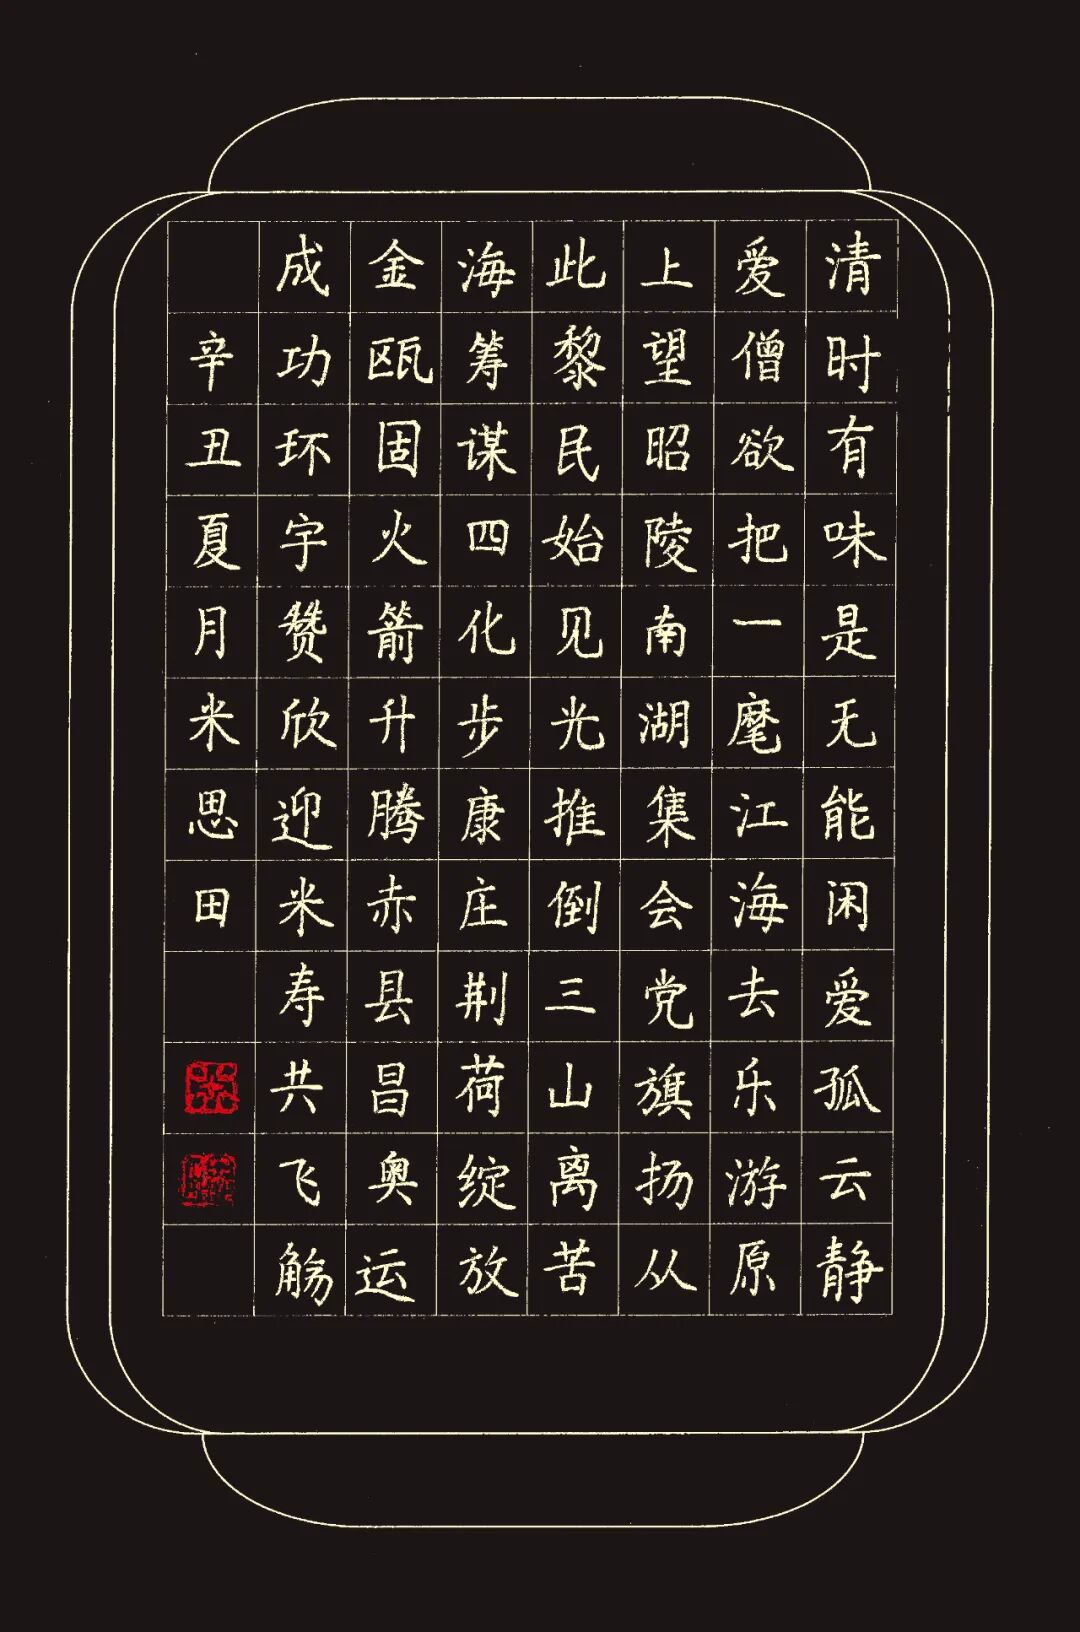 清时有味是无能闲爱孤云静
爱僧欲把一麾江海去乐游原
上望昭陵南湖集会党旗扬从
此黎民始见光推倒三山离苦
海筹谋四化步康庄荆荷绽放
金瓯固火箭升腾赤县昌奥运
成功环宇赞欣迎米寿共飞觞
辛丑夏月米思田